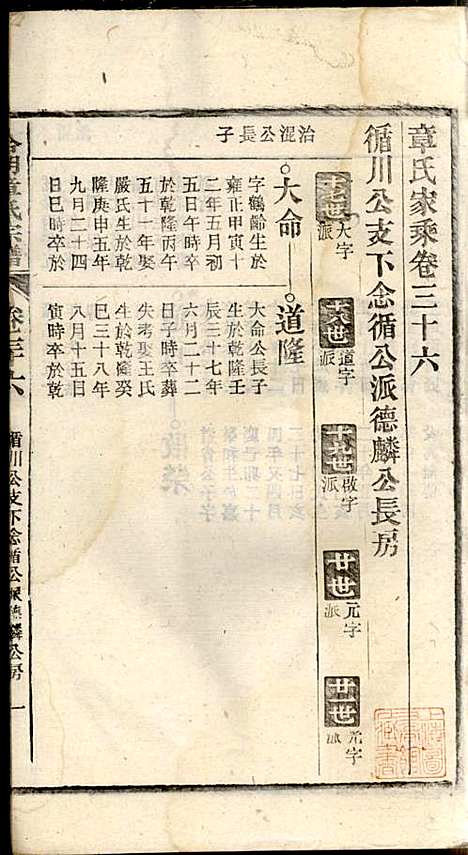 章氏家乘卷三十六
循川公支下念循公派德麟公長房
十七世 大字派
十八世 道字派
十九世 啟字派
廿世 元字派
廿世 元字派
治混公長子
大命
字鶴齡生於
雍正甲寅十
二年五月初
五日午時卒
於乾隆丙午
五十一年娶
嚴氏生於乾
隆庚申五年
九月二十四
日巳時卒於
道隆
大命公長子
生於乾隆壬
辰三十七年
六月二十二
日子時卒葬
失考娶王氏
生於乾隆癸
巳三十八年
八月十五日
寅時卒於乾
章氏宗譜
卷三十六
循川公支下念循公派德麟公房
一